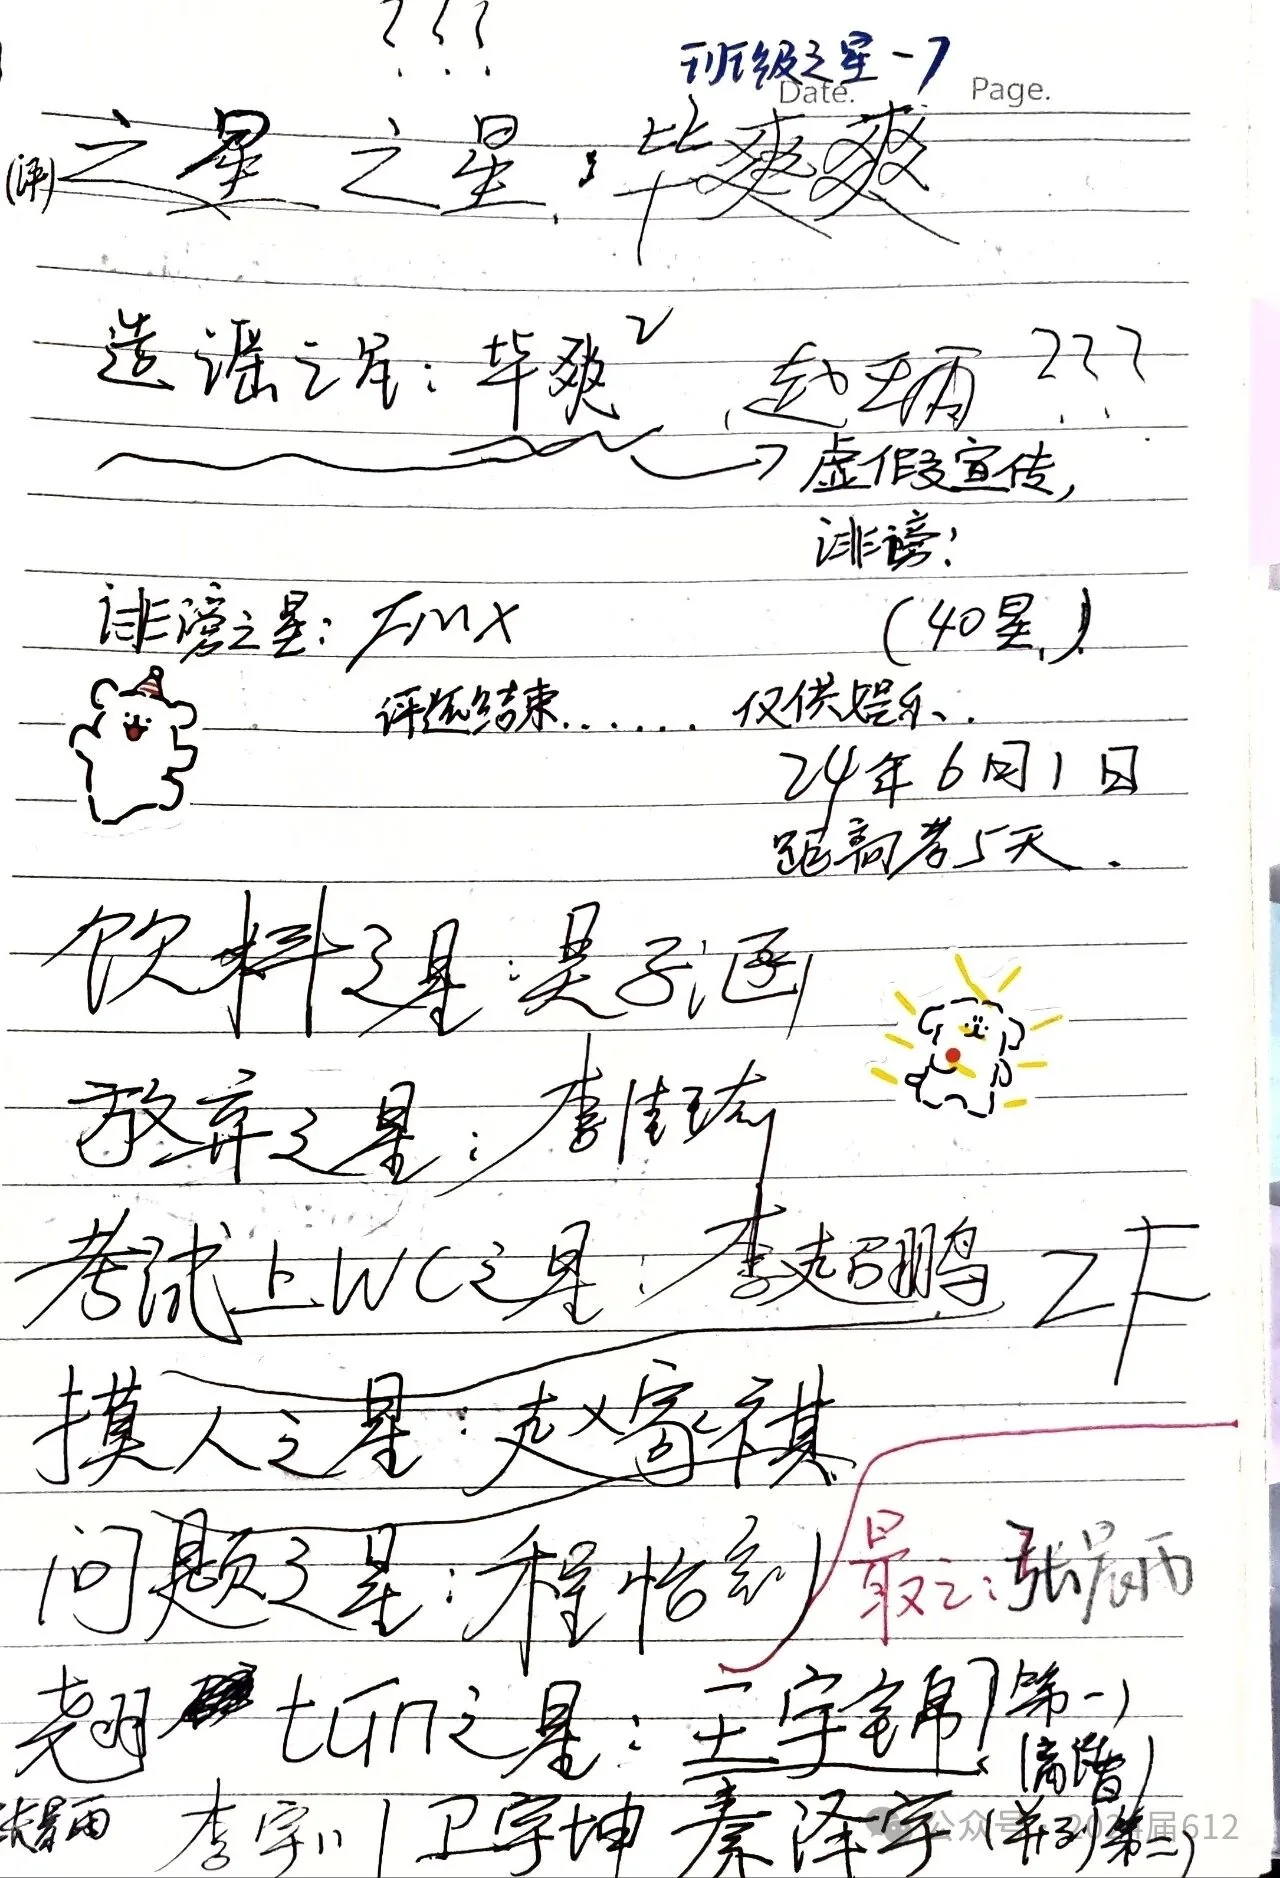 ???
班级之星-7
Date. Page.
(评)之星之星:毕爽爽
造谣之星:毕爽² 赵 ???
虚假宣传,
诽谤!
诽谤之星:FMX (40星)
评选结束...... 仅供娱乐..
24年6月1日
距高考5天.
饮料之星:吴子涵
放弃之星:李佳
考试上WC之星:李超鹏
摸人之星:赵家祺
问题之星:程怡 最之:张晨雨
翘tun之星:王宇锦 第一
(高  )
李宇川 卫宇坤 秦泽宇 (并列第二)
公众号·2024届612